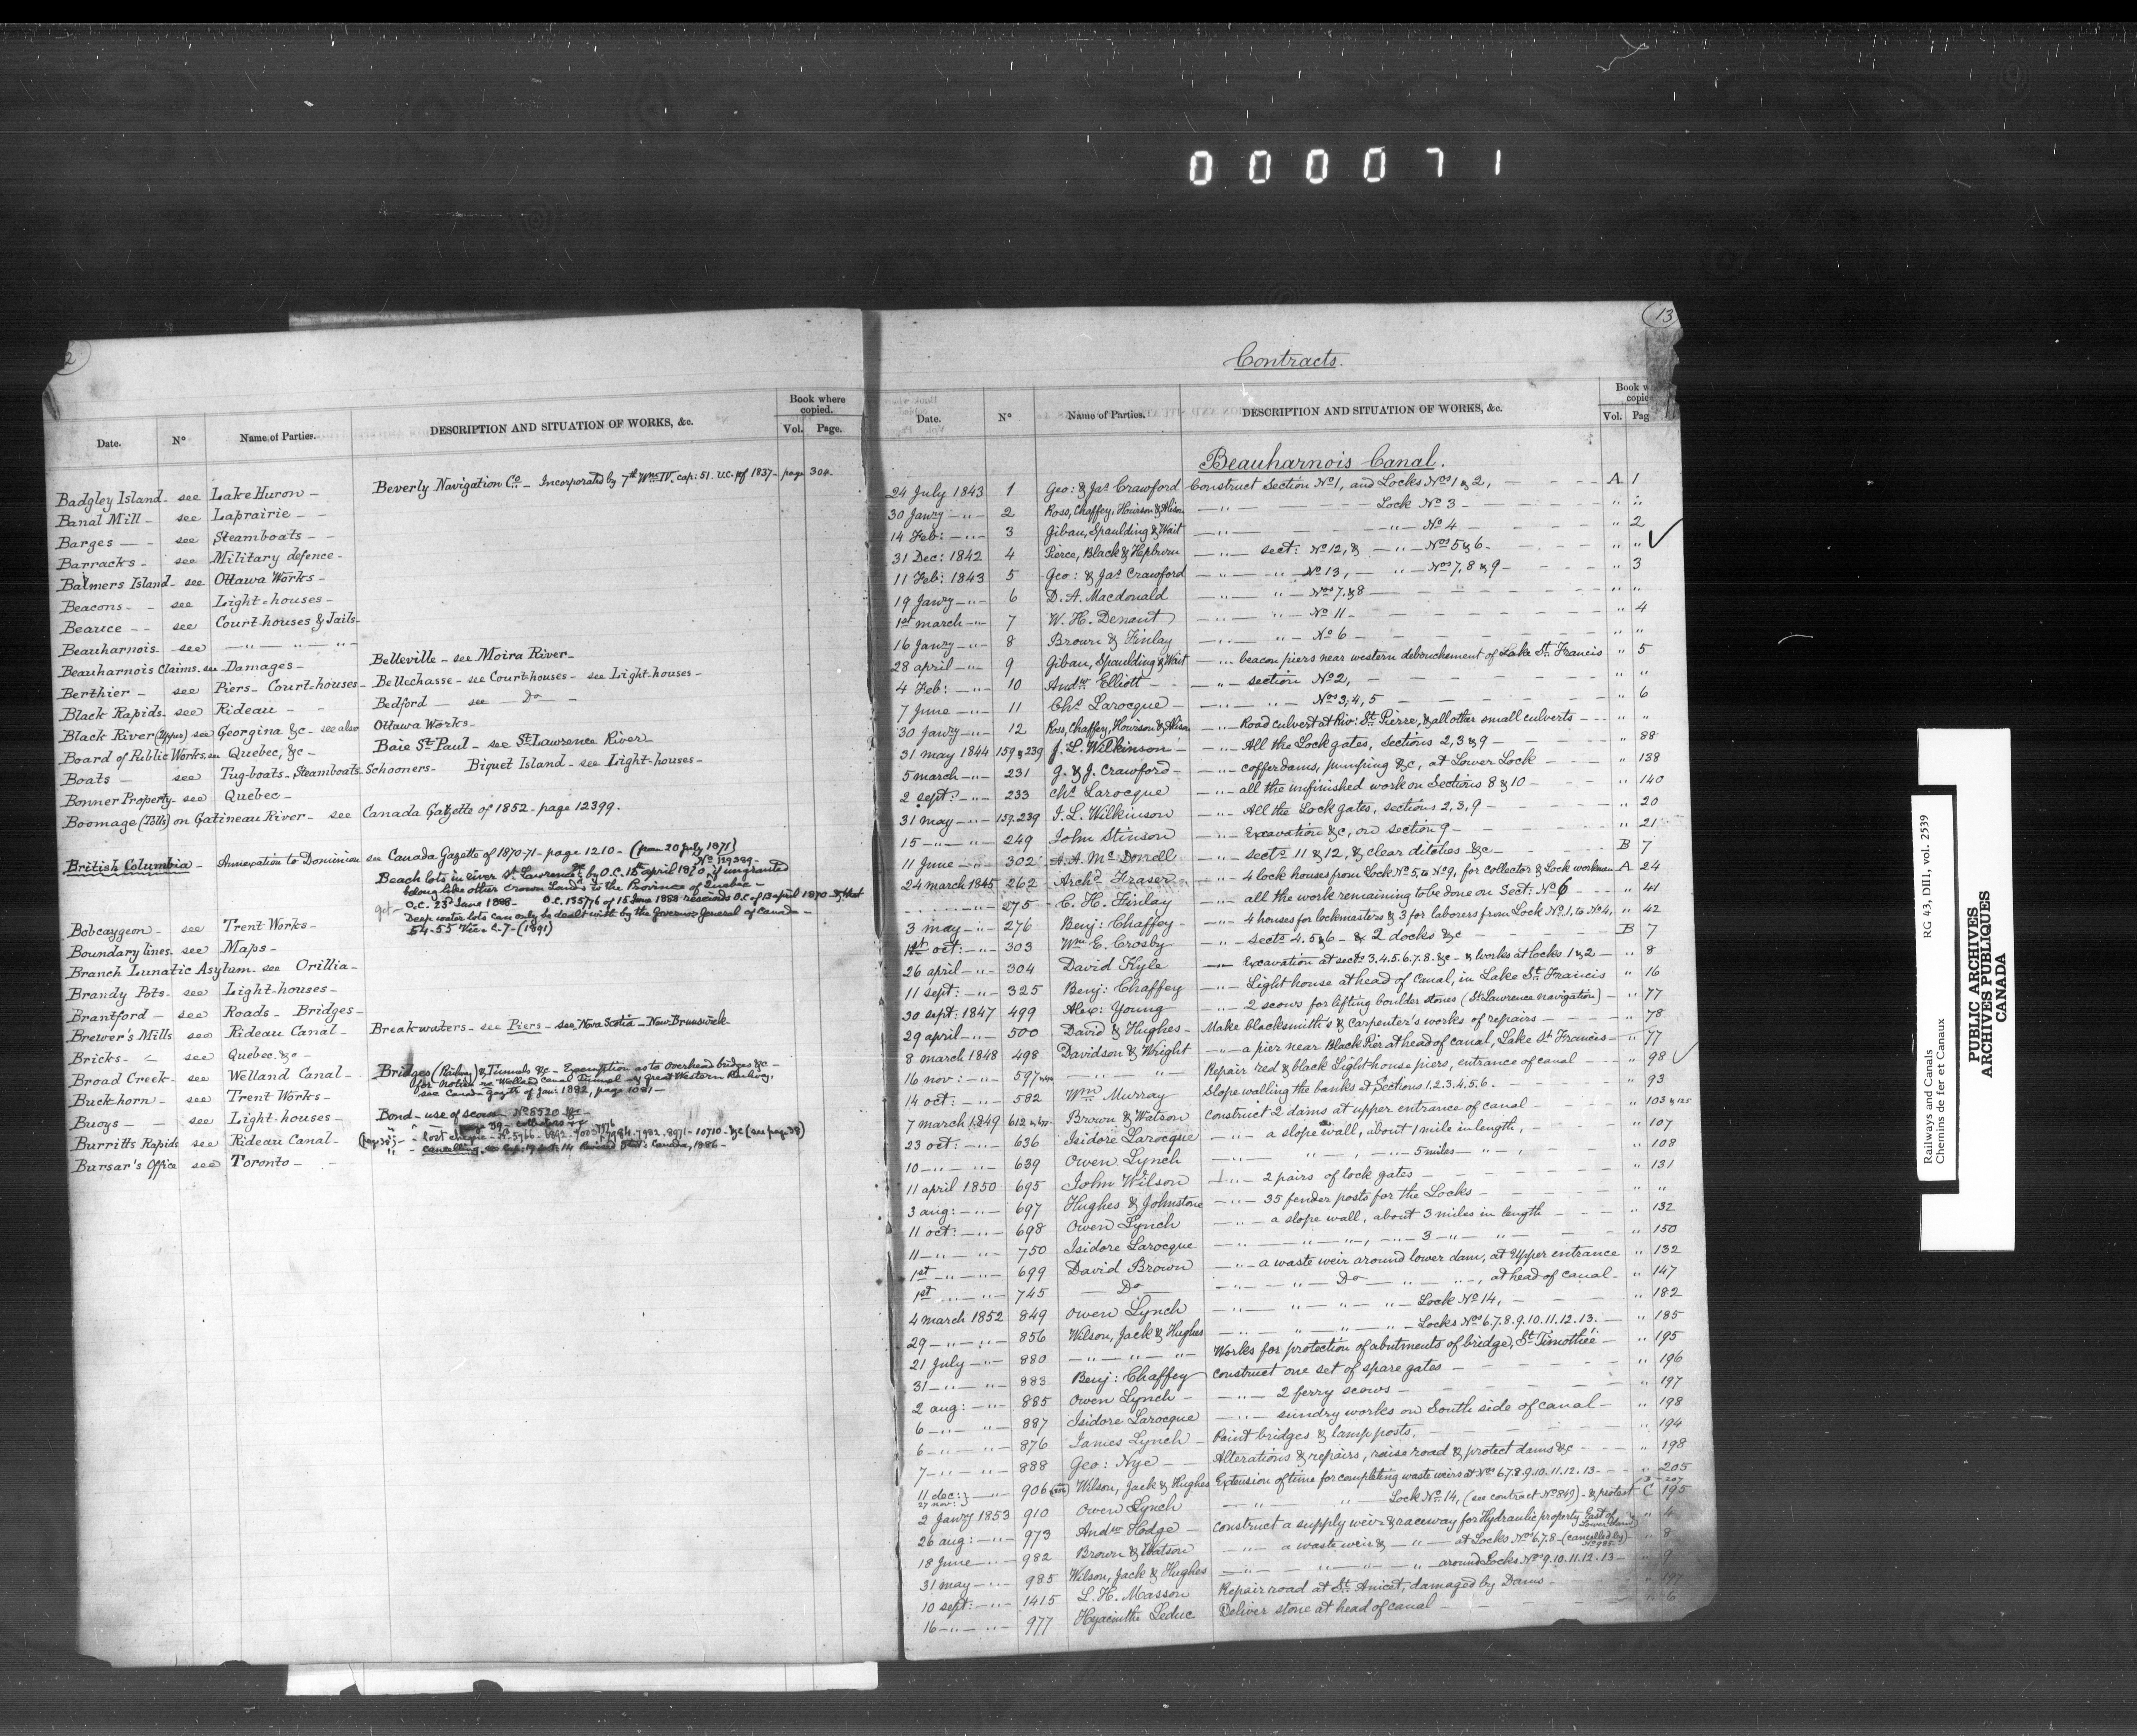 000071
2
Date. No Name of Parties. DESCRIPTION AND SITUATION OF WORKS, &c. Book where copied. Vol. Page.
Beverly Navigation Co. - Incorporated by 7th Wm IV. cap: 51. U.C. of 1837 - page 304.
Badgley Island - see Lake Huron -
Banal Mill - see Laprairie - -
Barges - - see Steamboats - -
Barracks - see Military defence -
Balmers Island - see Ottawa Works -
Beacons - - see Light-houses -
Beauce - - see Court-houses & Jails -
Beauharnois - see - " - " - " -
Beauharnois Claims. see Damages - Belleville - see Moira River -
Berthier - see Piers - Court-houses - Bellechasse - see Court-houses - see Light-houses -
Black Rapids - see Rideau - - Bedford - see - Do -
Black River (Upper) see Georgina &c - see also Ottawa Works -
Board of Public Works, see Quebec, &c - Baie St Paul - see St Lawrence River -
Boats - see Tug-boats - Steamboats - Schooners - Biquet Island - see Light-houses -
Bonner Property - see Quebec -
Boomage (Tolls) on Gatineau River - see Canada Gazette of 1852 - page 12399.
British Columbia - Annexation to Dominion see Canada Gazette of 1870-71 - page 1210 - (from 20 July 1871)
No 119389 -
Beach lots in river St Lawrence &c by O.C. 15th april 1870, if ungranted
belong like other Crown Lands to the Province of Quebec -
O.C. 23d June 1888 - O.C. 135776 of 15 June 1888 rescinds O.C. of 13 april 1870 & that
Deep water lots can only be dealt with by the Governor General of Canada -
54-55 Vic. c. 7 - (1891)
Bobcaygeon - see Trent Works -
Boundary lines. see Maps -
Branch Lunatic Asylum - see Orillia -
Brandy Pots - see Light-houses -
Brantford - see Roads - Bridges -
Brewer's Mills see Rideau Canal - Breakwaters - see Piers - see Nova Scotia - New Brunswick -
Bricks - see Quebec &c -
Broad Creek - see Welland Canal - Bridges (Railway) & Tunnels &c - Exemption as to Overhead bridges &c -
for notice re Welland Canal Tunnel - of Great Western Railway,
see Canada Gazette of Jan: 1882, page 1081 -
Buckhorn - see Trent Works -
Buoys - - see Light-houses - Bond - use of scows - No 8520 &c -
Burritts Rapids see Rideau Canal -
Bursar's Office see Toronto - -
13
Contracts.
Date. No Name of Parties. DESCRIPTION AND SITUATION OF WORKS, &c. Book w copie Vol. Pag
Beauharnois Canal.
24 July 1843 1 Geo: & Jas Crawford Construct Section No 1, and Locks Nos 1 & 2, - A 1
30 Janry - " - 2 Ross, Chaffey, Howison & Alison - " - Lock No 3 - " "
14 Feb: - " - 3 Gibau, Spaulding & Wait - " - - " - No 4 - " 2
31 Dec: 1842 4 Pierce, Black & Hepburn - " - sect: No 12, & - " - Nos 5 & 6 - " "
11 Feb: 1843 5 Geo: & Jas Crawford - " - " - No 13, - " - Nos 7, 8 & 9 - " 3
19 Janry - " - 6 D. A. Macdonald - " - " - Nos 7, & 8 - " "
1st march - " - 7 W. H. Denaut - " - " - No 11 - " 4
16 Janry - " - 8 Brown & Finlay - " - " - No 6 - " "
28 april - " - 9 Gibau, Spaulding & Wait - " - beacon piers near western debouchement of Lake St Francis " 5
4 Feb: - " - 10 Andw Elliott - - " - section No 2, - " "
7 June - " - 11 Chs Larocque - - " - " - Nos 3, 4, 5 - " 6
30 Janry - " - 12 Ross, Chaffey, Howison & Alison - " - Road culvert at Riv: St Pierre, & all other small culverts - " "
31 may 1844 159 & 239 J. L. Wilkinson - - " - All the Lock gates, Sections 2, 3 & 9 - " 88
5 march - " - 231 G. & J. Crawford - - " - cofferdams, pumping &c, at Lower Lock - " 138
2 sept: - " - 233 Chs Larocque - " - all the unfinished work on Sections 8 & 10 - " 140
31 may - " - 157.239 J. L. Wilkinson - " - All the Lock gates, sections 2, 3, 9 - " 20
15 - " - " - 249 John Stinson - " - Excavation &c, on section 9 - " 21
11 June - " - 302 A. A. Mc Donell - " - sects 11 & 12, & clear ditches &c - B 7
24 march 1845 262 Archd Fraser - " - 4 lock houses from Lock No 5, to No 9, for collector & Lock workmen A 24
275 C. H. Finlay - " - all the work remaining to be done on Sect: No 6 - " 41
3 may - " - 276 Benj: Chaffey - - " - 4 houses for lockmasters & 3 for laborers from Lock No 1, to No 4, " 42
1st oct: - " - 303 Wm E. Crosby - " - sects 4, 5 & 6 - & 2 docks &c - B 7
26 april - " - 304 David Kyle - " - Excavation at sects 3.4.5.6.7.8. &c - & works at locks 1 & 2 - " 8
11 sept: - " - 325 Benj: Chaffey - " - Light house at head of Canal, in Lake St Francis " 16
30 sept: 1847 499 Alex: Young - " - 2 scows for lifting boulder stones (St Lawrence navigation) - " 77
29 april - " - 500 David & Hughes - Make blacksmith's & carpenter's works of repairs - " 78
8 march 1848 498 Davidson & Wright - " - a pier near Black Pier at head of canal, Lake St Francis - " 77
16 nov: - " - 597 - " - " - Repair red & black Light-house piers, entrance of canal - " 98
14 oct: - " - 582 Wm Murray Slope walling the banks at Sections 1.2.3.4.5.6. - " 93
7 march 1849 612 Brown & Watson Construct 2 dams at upper entrance of canal - " 103
23 oct: - " - 636 Isidore Larocque - " - a slope wall, about 1 mile in length, - " 107
10 - " - " - 639 Owen Lynch - " - " - , - " - 5 miles - " - , " 108
11 april 1850 695 John Wilson - " - 2 pairs of lock gates - " 131
3 aug: - " - 697 Hughes & Johnstone - " - 35 fender posts for the Locks - " "
11 oct: - " - 698 Owen Lynch - " - a slope wall, about 3 miles in length - " 132
11 - " - " - 750 Isidore Larocque - " - " - " - , - " - 3 - " - " - " 150
1st - " - " - 699 David Brown - " - a waste weir around lower dam, at Upper entrance " 132
1st - " - " - 745 - Do - - " - " - Do - " - " - , at head of canal - " 147
4 march 1852 849 Owen Lynch - " - " - " - " - Lock No 14, - " 182
29 - " - " - 856 Wilson, Jack & Hughes - " - " - " - " - Locks Nos 6.7.8.9.10.11.12.13. - " 185
21 July - " - 880 - " - " - " - Works for protection of abutments of bridge, St Timothée - " 195
31 - " - " - 883 Benj: Chaffey Construct one set of spare gates - " 196
2 aug: - " - 885 Owen Lynch - - " - 2 ferry scows - " 197
6 - " - " - 887 Isidore Larocque - " - sundry works on South side of canal - " 198
6 - " - " - 876 James Lynch - Paint bridges & lamp posts. - " 194
7 - " - " - 888 Geo: Nye - - Alterations & repairs, raise road & protect dams &c - " 198
11 dec: 27 nov: 906 Wilson, Jack & Hughes Extension of time for completing waste weirs at Nos 6.7.8.9.10.11.12.13 - " 205
2 Janry 1853 910 Owen Lynch - " - " - Lock No 14, (see contract No 849) - & protest C 195
26 aug: - " - 973 Andw Hodge - Construct a supply weir & raceway for Hydraulic property East of Lower dam " 4
18 June - " - 982 Brown & Watson - " - a waste weir & - " - at Locks Nos 6.7.8 - (cancelled by No 985) " 8
31 may - " - 985 Wilson, Jack & Hughes - " - " - " - " - around Locks Nos 9.10.11.12.13 - " 9
10 sept: - " - 1415 L. H. Masson Repair road at St Anicet, damaged by Dams - " 197
16 - " - " - 977 Hyacinthe Leduc Deliver stone at head of canal - " 6
Railways and Canals RG 43, DIII, vol. 2539
Chemins de fer et Canaux
PUBLIC ARCHIVES
ARCHIVES PUBLIQUES
CANADA